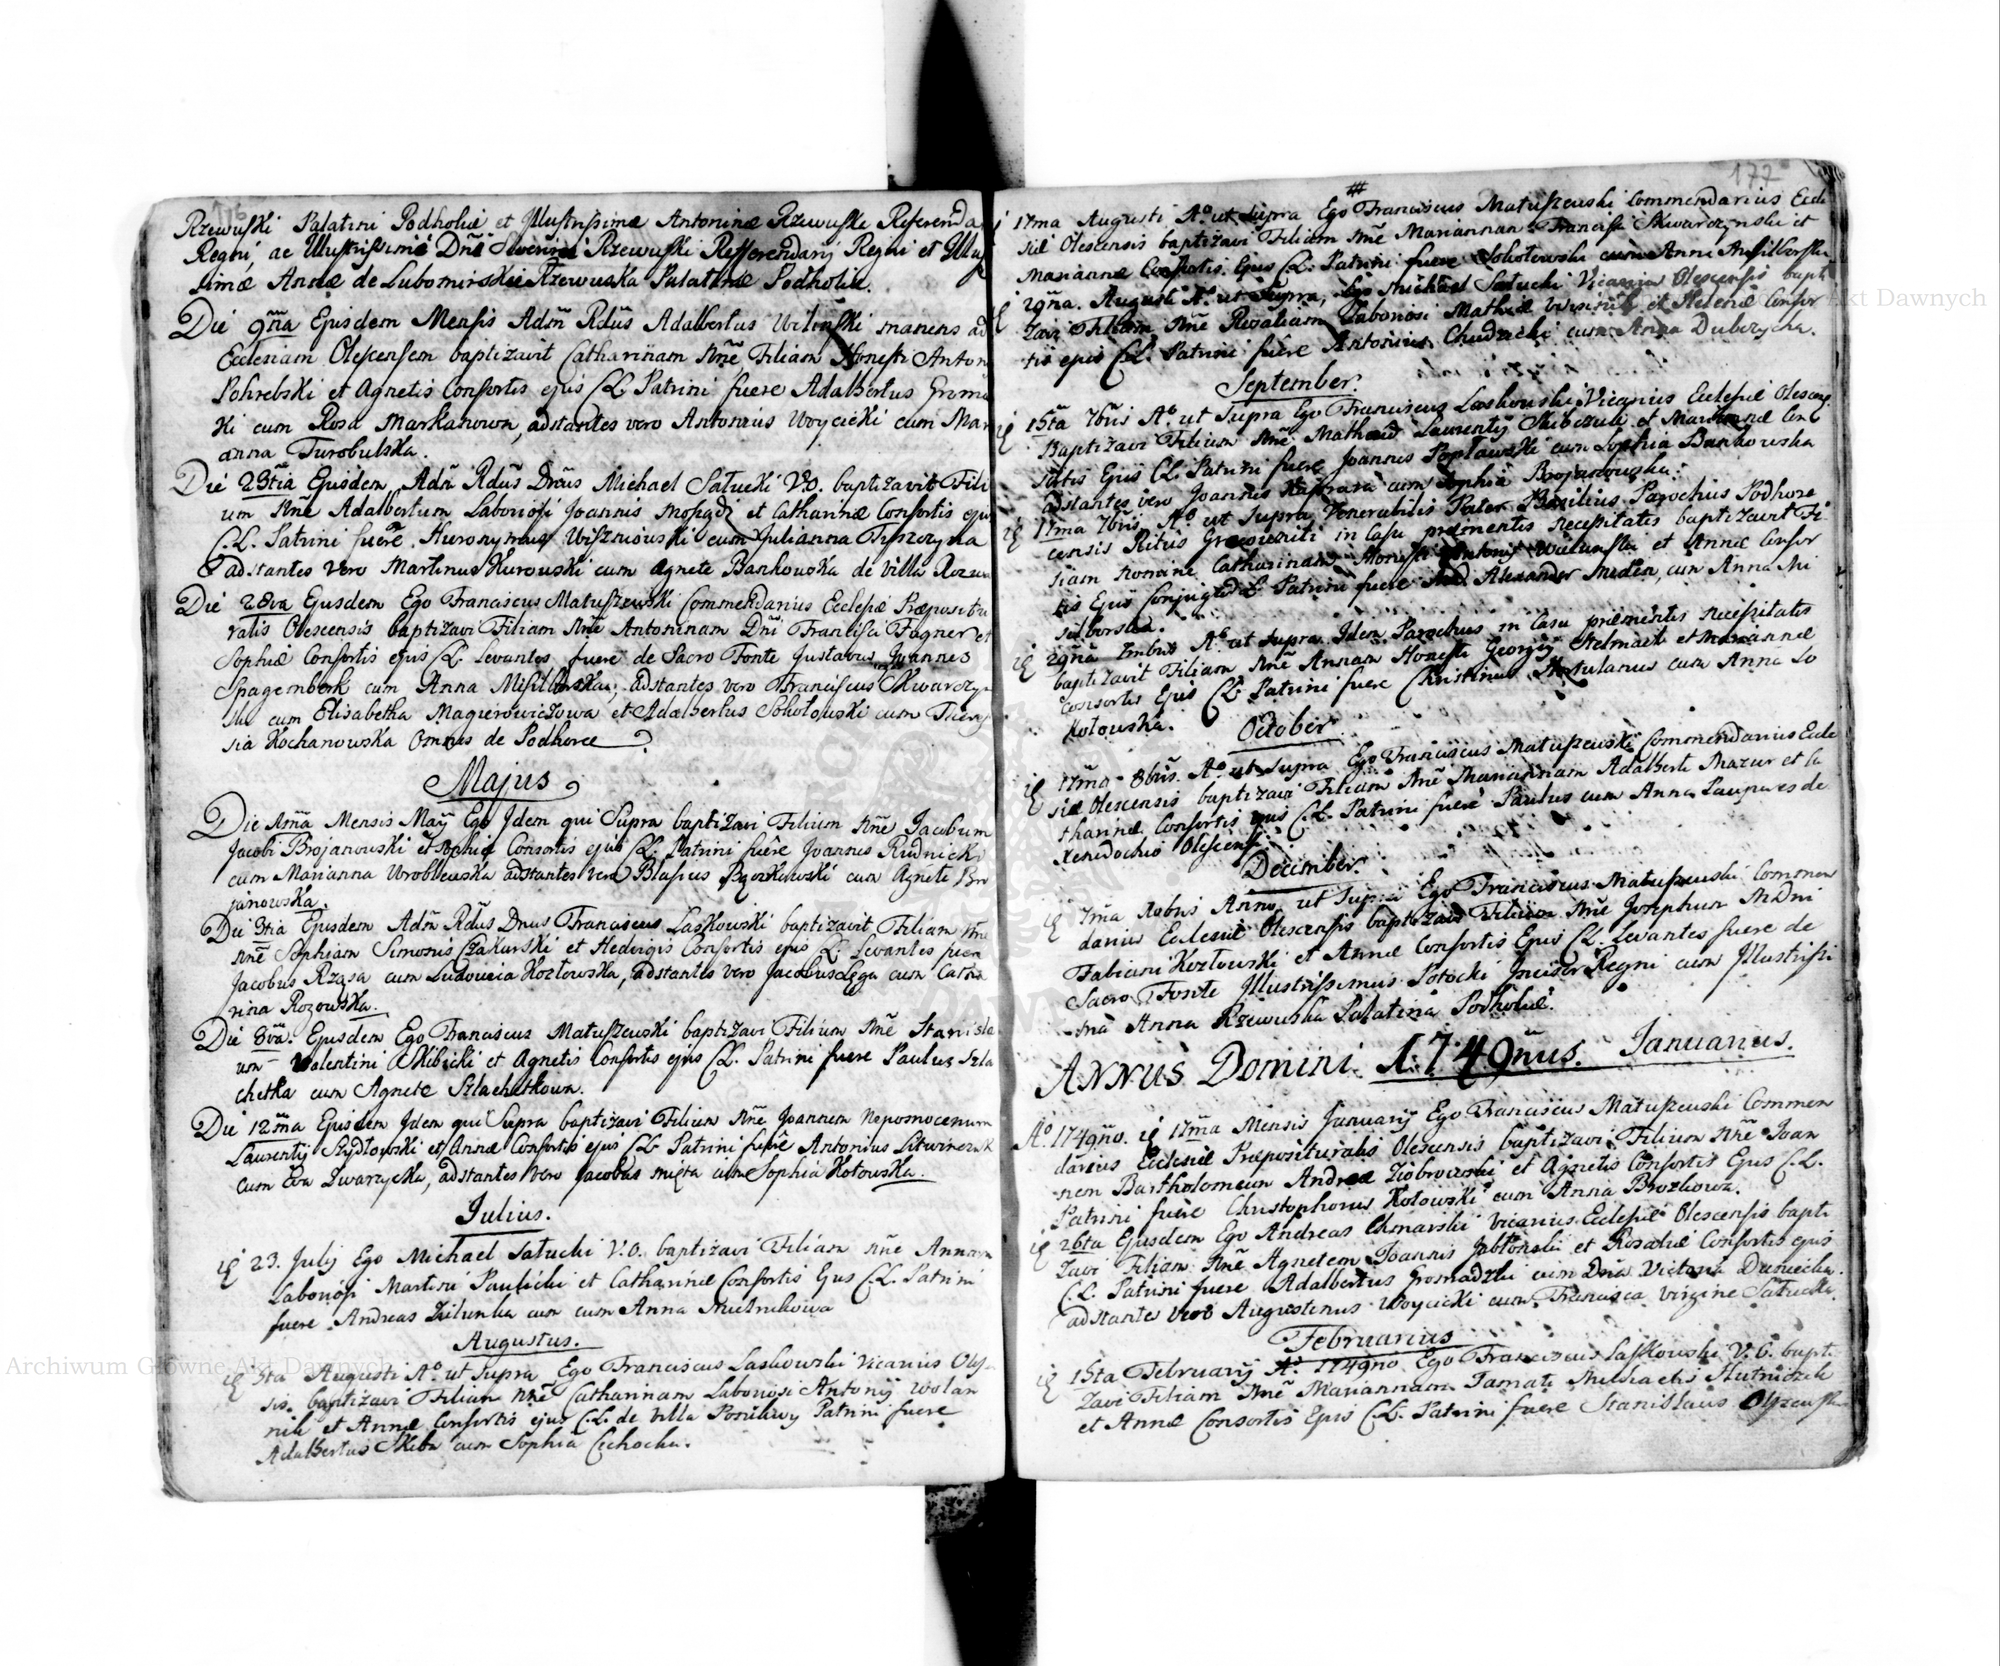 176
Rzewuski Palatini Podholiæ et Illustrissimæ Antoninæ Rzewuske Referenda
Regni, ac Illustrissimi Dñi Severini Rzewuski Refferendarÿ Regni et Illus
simæ Annæ de Lubomirskie Rzewuska Palatinæ Podholiæ.
Die 9ña Ejusdem Mensis Adm̃ Rdũs Adalbertus manens ad
Ecclesiam Olescensem baptizavit Catharinam Nñe Filiam Honesti Anton
Pohrebski et Agnetis Consortis ejus C.L. Patrini fuere Adalbertus Groma
ki cum Rosa Markanowa, adstantes vero Antonius Woycicki cum Mar
anna Turobulska.
Die 23tia Ejusdem Adm̃ Rdũs Dñus Michael Satucki V.O. baptizavit Fili
um Nñe Adalbertum Laboriosi Joannis et Catharinæ Consortis ejus
C.L. Patrini fuere Hieronymus Wiszniouski cum Julianna Tyszczyna
adstantes vero Martinus Kurouski cum Agnete Bankouska de villa
Die 28va Ejusdem Ego Franciscus Matuszewski Commendarius Ecclesiæ Præpositu
ralis Olescensis baptizavi Filiam Nñe Antoninam Dñi Francisci Fagner et
Sophiæ Consortis ejus C.L. Levantes fuere de Sacro Fonte Gustavus Joannes
Spagemberk cum Anna adstantes vero Franciscus Skwarczyn
ski cum Elisabetha Magierowiczowa et Adalbertus Sokołouski cum There
sia Kochanowska Omnes de Podhorce
Majus
Die Mensis Maÿ Ego Idem qui Supra baptizavi Filium Nñe Jacobum
Jacobi Brojanouski et Sophiæ Consortis ejus C.L. Patrini fuêre Joannes Rudnicki
cum Marianna Wroblewska adstantes vero Blasius cum Agnete Bro
janowska.
Die 3tia Ejusdem Adm̃ Rdũs Dnus Franciscus Laskowski baptizavit Filiam
Nñe Sophiam Simonis Czakurski et Hedvigis Consortis ejus C.L. Levantes
Jacobus Rząsa cum Ludovica Kozłowska, adstantes vero Jacobus cum Catha
rina Rozowska.
Die 8va Ejusdem Ego Franciscus Matuszewski baptizavi Filium Nñe Stanisla
um Valentini Skibicki et Agnetis Consortis ejus C.L. Patrini fuere Paulus Szla
chetka cum Agnete Szlachetkowa.
Die 12ma Ejusdem Idem qui Supra baptizavi Filium Nñe Joannem Nepomocenum
Laurentÿ Szydłowski et Annæ Consortis ejus C.L. Patrini fuêre Antonius
cum Eva adstantes vero Jacobus cum Sophia Kotowska.
Julius.
23. Julÿ Ego Michael Satucki V.O. baptizavi Filiam Nñe Annam
Laboriosi Martini Paulicki et Catharinæ Consortis Ejus C.L. Patrini
fuere Andreas cum cum Anna
Augustus.
3tia Augusti Aº ut supra Ego Franciscus Laskowski Vicarius Oles
sis baptizavi Filiam Nñe Catharinam Laboriosi Antonÿ Wolan
nik et Annæ Consortis ejus C.L. de Villa Patrini fuere
Adalbertus Skiba cum Sophia Cichocka.
177
17ma Augusti Aº ut supra Ego Franciscus Matuszewski Commendarius Eccle
siæ Olescensis baptizavi Filiam Nñe Mariannam Francisci Skwarczynski et
Mariannæ Consortis Ejus C.L. Patrini fuere Sokołowski cum Anna
29ña Augusti Aº ut Supra, Ego Michael Satucki Vicarius Olescensis bapti
zavi Filiam Nñe Rosaliam Laboriosi Mathiæ et Helenæ Consor
tis ejus C.L. Patrini fuêre Antonius Chudzicki cum Anna
September.
15ta 7bris Aº ut Supra Ego Franciscus Laskouski Vicarius Ecclesiæ Olescensis
Baptizavi Filium Nñe Mathæum Laurentÿ et Mariannæ Con
sortis Ejus C.L. Patrini fuere Joannes Popławski cum Sophia Bankowska
adstantes vero Joannes cum Sophia Brojanowska.
17ma 7bris Aº ut Supra Venerabilis Pater Basilius Parochus Podhore
censis Ritus Græcouniti in Casu præmentis necessitatis baptizavit Fi
liam Nomine Catharinam Honesti Antonÿ et Annæ Consor
tis Ejus Conjugis C.L. Patrini fuere Alexander cum Anna Mi
29ña 7mbris Aº ut supra Idem Parochus in Casu præmentis necessitatis
baptizavit Filiam Nñe Annam Honesti Georgÿ Stelmach et Mariannæ
Consortis Ejus C.L. Patrini fuere Christinus cum Anna So
kołouska.
October
17ma 8bris. Aº ut supra Ego Franciscus Matuszewski Commendarius Eccle
siæ Olescensis baptizavi Filiam Nñe Mariannam Adalberti Mazur et Ca
tharinæ Consortis ejus C.L. Patrini fuere Paulus cum Anna Pauperes de
Xenodochio Olescensi.
December.
7ma Xbris Anno ut Supra Ego Franciscus Matuszewski Commen
darius Ecclesiæ Olescensis baptizavi Filium Nñe Josephum
Fabiani Kozłowski et Annæ Consortis Ejus C.L. Levantes fuere de
Sacro Fonte Illustrissimus Potocki Incisor Regni cum Illustrissi
ma Anna Rzewuska Palatina Podholiæ.
Annus Domini 1749nus. Januarius.
Aº 1749no. 17ma Mensis Januarÿ Ego Franciscus Matuszewski Commen
darius Ecclesiæ Præposituralis Olescensis baptizavi Filium Nñe Joan
nem Bartholomeum Andreæ Ziobrowski et Agnetis Consortis Ejus C.L.
Patrini fuere Christophorus Kotowski cum Anna
26ta Ejusdem Ego Andreas Chmarski Vicarius Ecclesiæ Olescensis bapti
zavi Filiam Nñe Agnetem Joannis Jabłonski et Rosaliæ Consortis ejus
C.L. Patrini fuere Adalbertus Gromadzki cum Dña Victoria
adstantes vero Augustinus Woycicki cum Francisca virgine Satucka.
Februarius
15ta Februarÿ Aº 1749no Ego Franciscus Laskowski V.O. bapti
zavi Filiam Nñe Mariannam Famati Michaelis
et Annæ Consortis Ejus C.L. Patrini fuere Stanislaus
Archiwum Główne Akt Dawnych